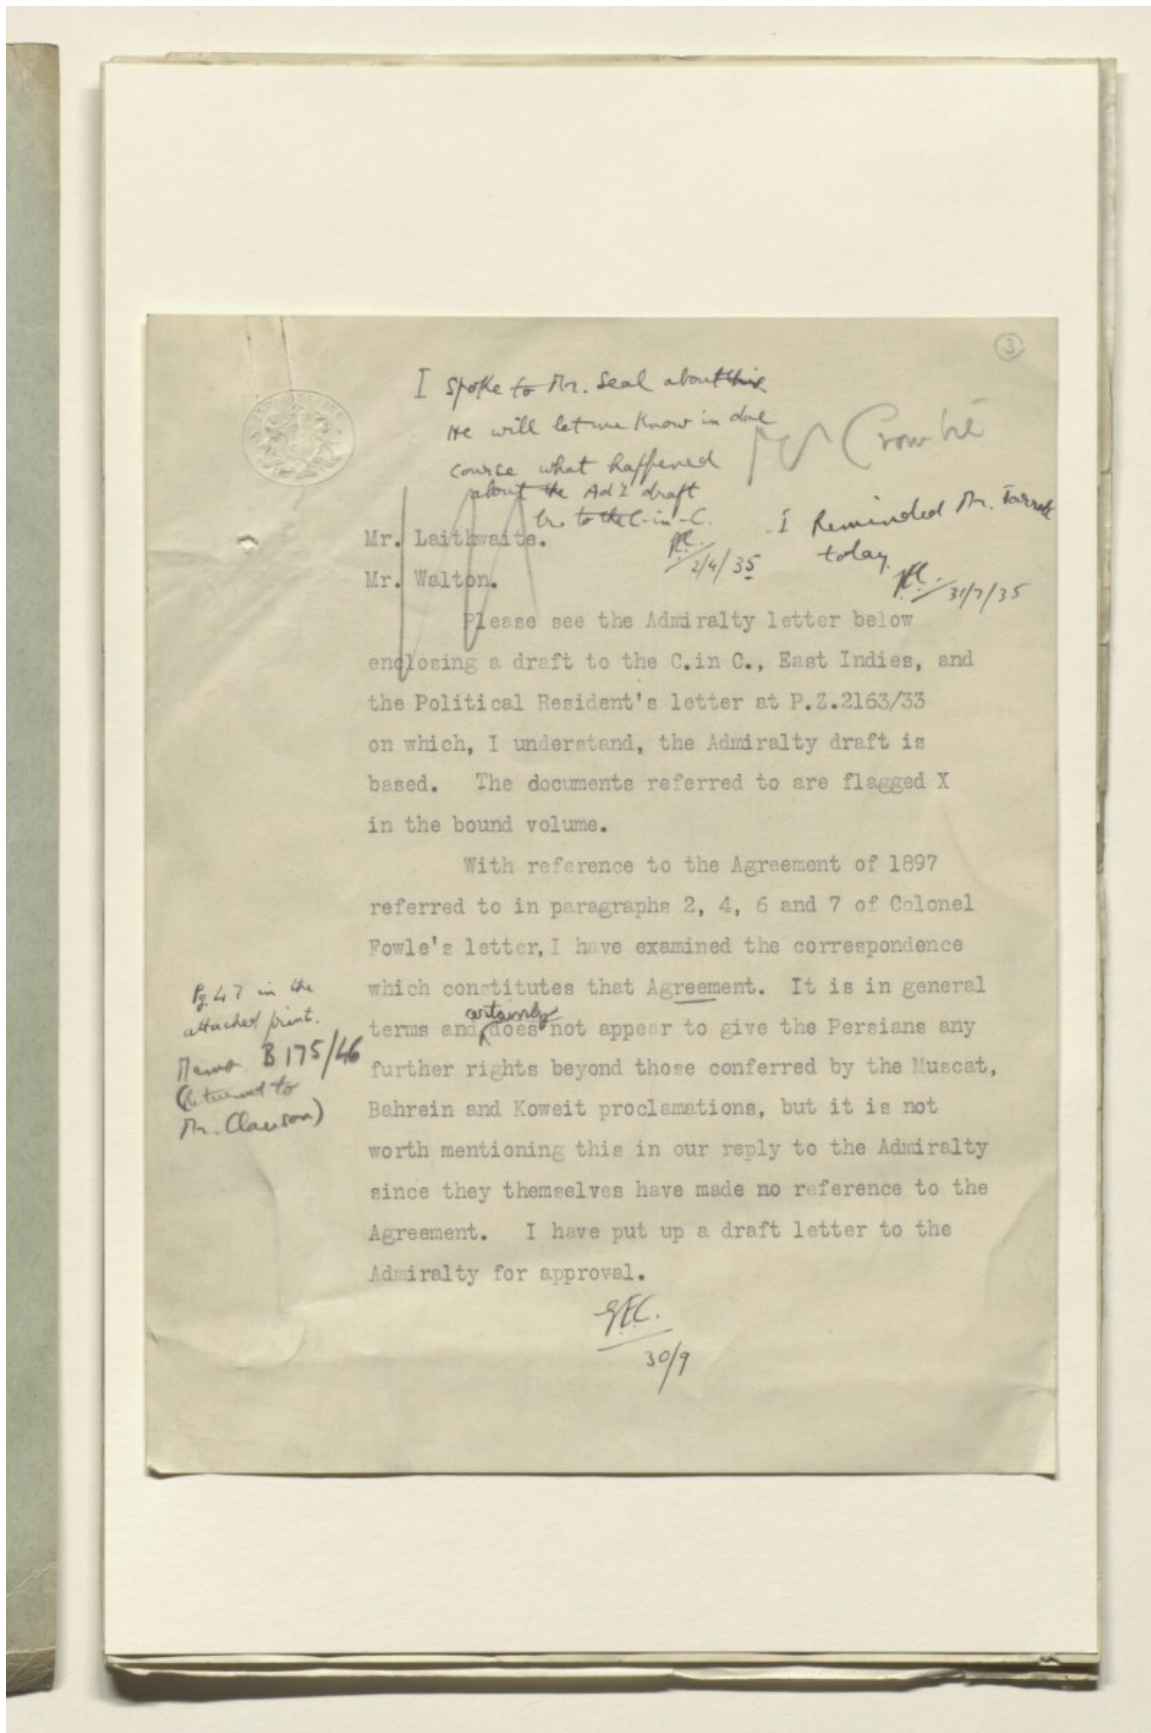 3
I spoke to Mr. Seal about this
He will let me know in due
course what happened
about the Adty draft
to the C-in-C.
2/4/35
Mr Crombie
I Reminded Mr. Jarrett
today.
31/7/35
Mr. Laithwaite.
Mr. Walton.
Please see the Admiralty letter below
enclosing a draft to the C.in C., East Indies, and
the Political Resident's letter at P.Z.2163/33
on which, I understand, the Admiralty draft is
based. The documents referred to are flagged X
in the bound volume.
With reference to the Agreement of 1897
referred to in paragraphs 2, 4, 6 and 7 of Colonel
Fowle's letter, I have examined the correspondence
which constitutes that Agreement. It is in general
terms and certainly does not appear to give the Persians any
further rights beyond those conferred by the Muscat,
Bahrein and Koweit proclamations, but it is not
worth mentioning this in our reply to the Admiralty
since they themselves have made no reference to the
Agreement. I have put up a draft letter to the
Admiralty for approval.
Pg. 47 in the
attached print.
Memo. B 175/46
(Returned to
Mr. Clauson)
G.F.C.
30/9